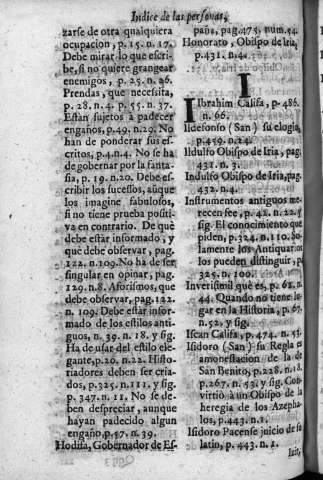 Indice de las personas,
zarse de otra qualquiera
ocupacion, p. 15. n. 17.
Debe mirar lo que escri-
be, si no quiere grangear
enemigos, p. 25. n. 26.
Prendas, que necesita,
p. 28. n. 4. p. 55. n. 37.
Estàn sujetos à padecer
engaños, p. 49. n. 29. No
han de ponderar sus es-
critos, p. 4. n. 4. No se ha
de gobernar por la fanta-
sia, p. 19. n. 20. Debe es-
cribir los sucessos, aùnque
los imagine fabulosos,
si no tiene prueba positi-
va en contrario. De què
debe estàr informado, y
què debe observar, pag.
122. n. 109. No ha de ser
singular en opinar, pag.
129. n. 8. Aforismos, que
debe observar, pag. 122.
n. 109. Debe estàr infor-
mado de los estilos anti-
guos, n. 39. n. 18. y sig.
Ha de usar del estilo ele-
gante, p. 20. n. 22. Histo-
riadores deben ser cria-
dos, p. 325. n. 111. y sig.
p. 347. n. 11. No se de-
ben despreciar, aunque
hayan padecido algun
engaño, p. 57. n. 39.
Hodifa, Gobernador de Es-
paña, pag. 475. num. 54.
Honorato, Obispo de Iria,
p. 431. n. 4.
I
Ibrahim Califa, p. 486.
n. 66.
Ildefonso (San) su elogio,
p. 459. n. 24.
Ildulfo Obispo de Iria, pag.
431. n. 3.
Indulfo Obispo de Iria, pag.
432. n. 4.
Instrumentos antiguos me-
recen fee, p. 42. n. 22. y
sig. El conocimiento que
piden, p. 324. n. 110. So-
lamente los Antiquarios
los pueden distinguir, p.
325. n. 100.
Inverisimil què es, p. 62. n.
44. Quando no tiene lu-
gar en la Historia, p. 67.
n. 52. y sig.
Iscan Califa, p. 474. n. 53.
Isidoro (San) su Regla es
amonestacion de la de
San Benito, p. 228. n. 18.
p. 267. n. 53. y sig. Con-
virtiò à un Obispo de la
heregia de los Azepha-
los, p. 443. n. 1.
Isidoro Pacense juicio de su
latin, p. 443. n. 1.